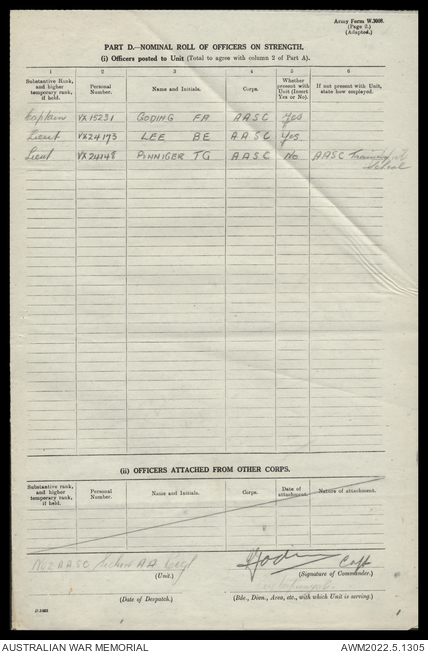 Army Form W.3008.
(Page 2.)
(Adapted.)
PART D.—NOMINAL ROLL OF OFFICERS ON STRENGTH,
(i) Officers posted to Unit (Total to agree with column 2 of Part A).
1 2 3 4 5 6
Substantive Rank, and higher temporary rank, if held. Personal Number. Name and Initials. Corps. Whether present with Unit (Insert Yes or No). If not present with Unit, state how employed.
Captain VX15231 GODING FA AASC Yes
Lieut VX24173 LEE BE AASC Yes
Lieut VX24148 PINNIGER TG AASC No AASC Training
School
(ii) OFFICERS ATTACHED FROM OTHER CORPS.
Substantive rank, and higher temporary rank, if held. Personal Number. Name and Initials. Corps. Date of attachment. Nature of attachment.
No 2 AASC Section AA Regt Capt
(Unit.) (Signature of Commander.)
(Date of Despatch.) (Bde., Divn., Area, etc., with which Unit is serving.)
AUSTRALIAN WAR MEMORIAL AWM2022.5.1305